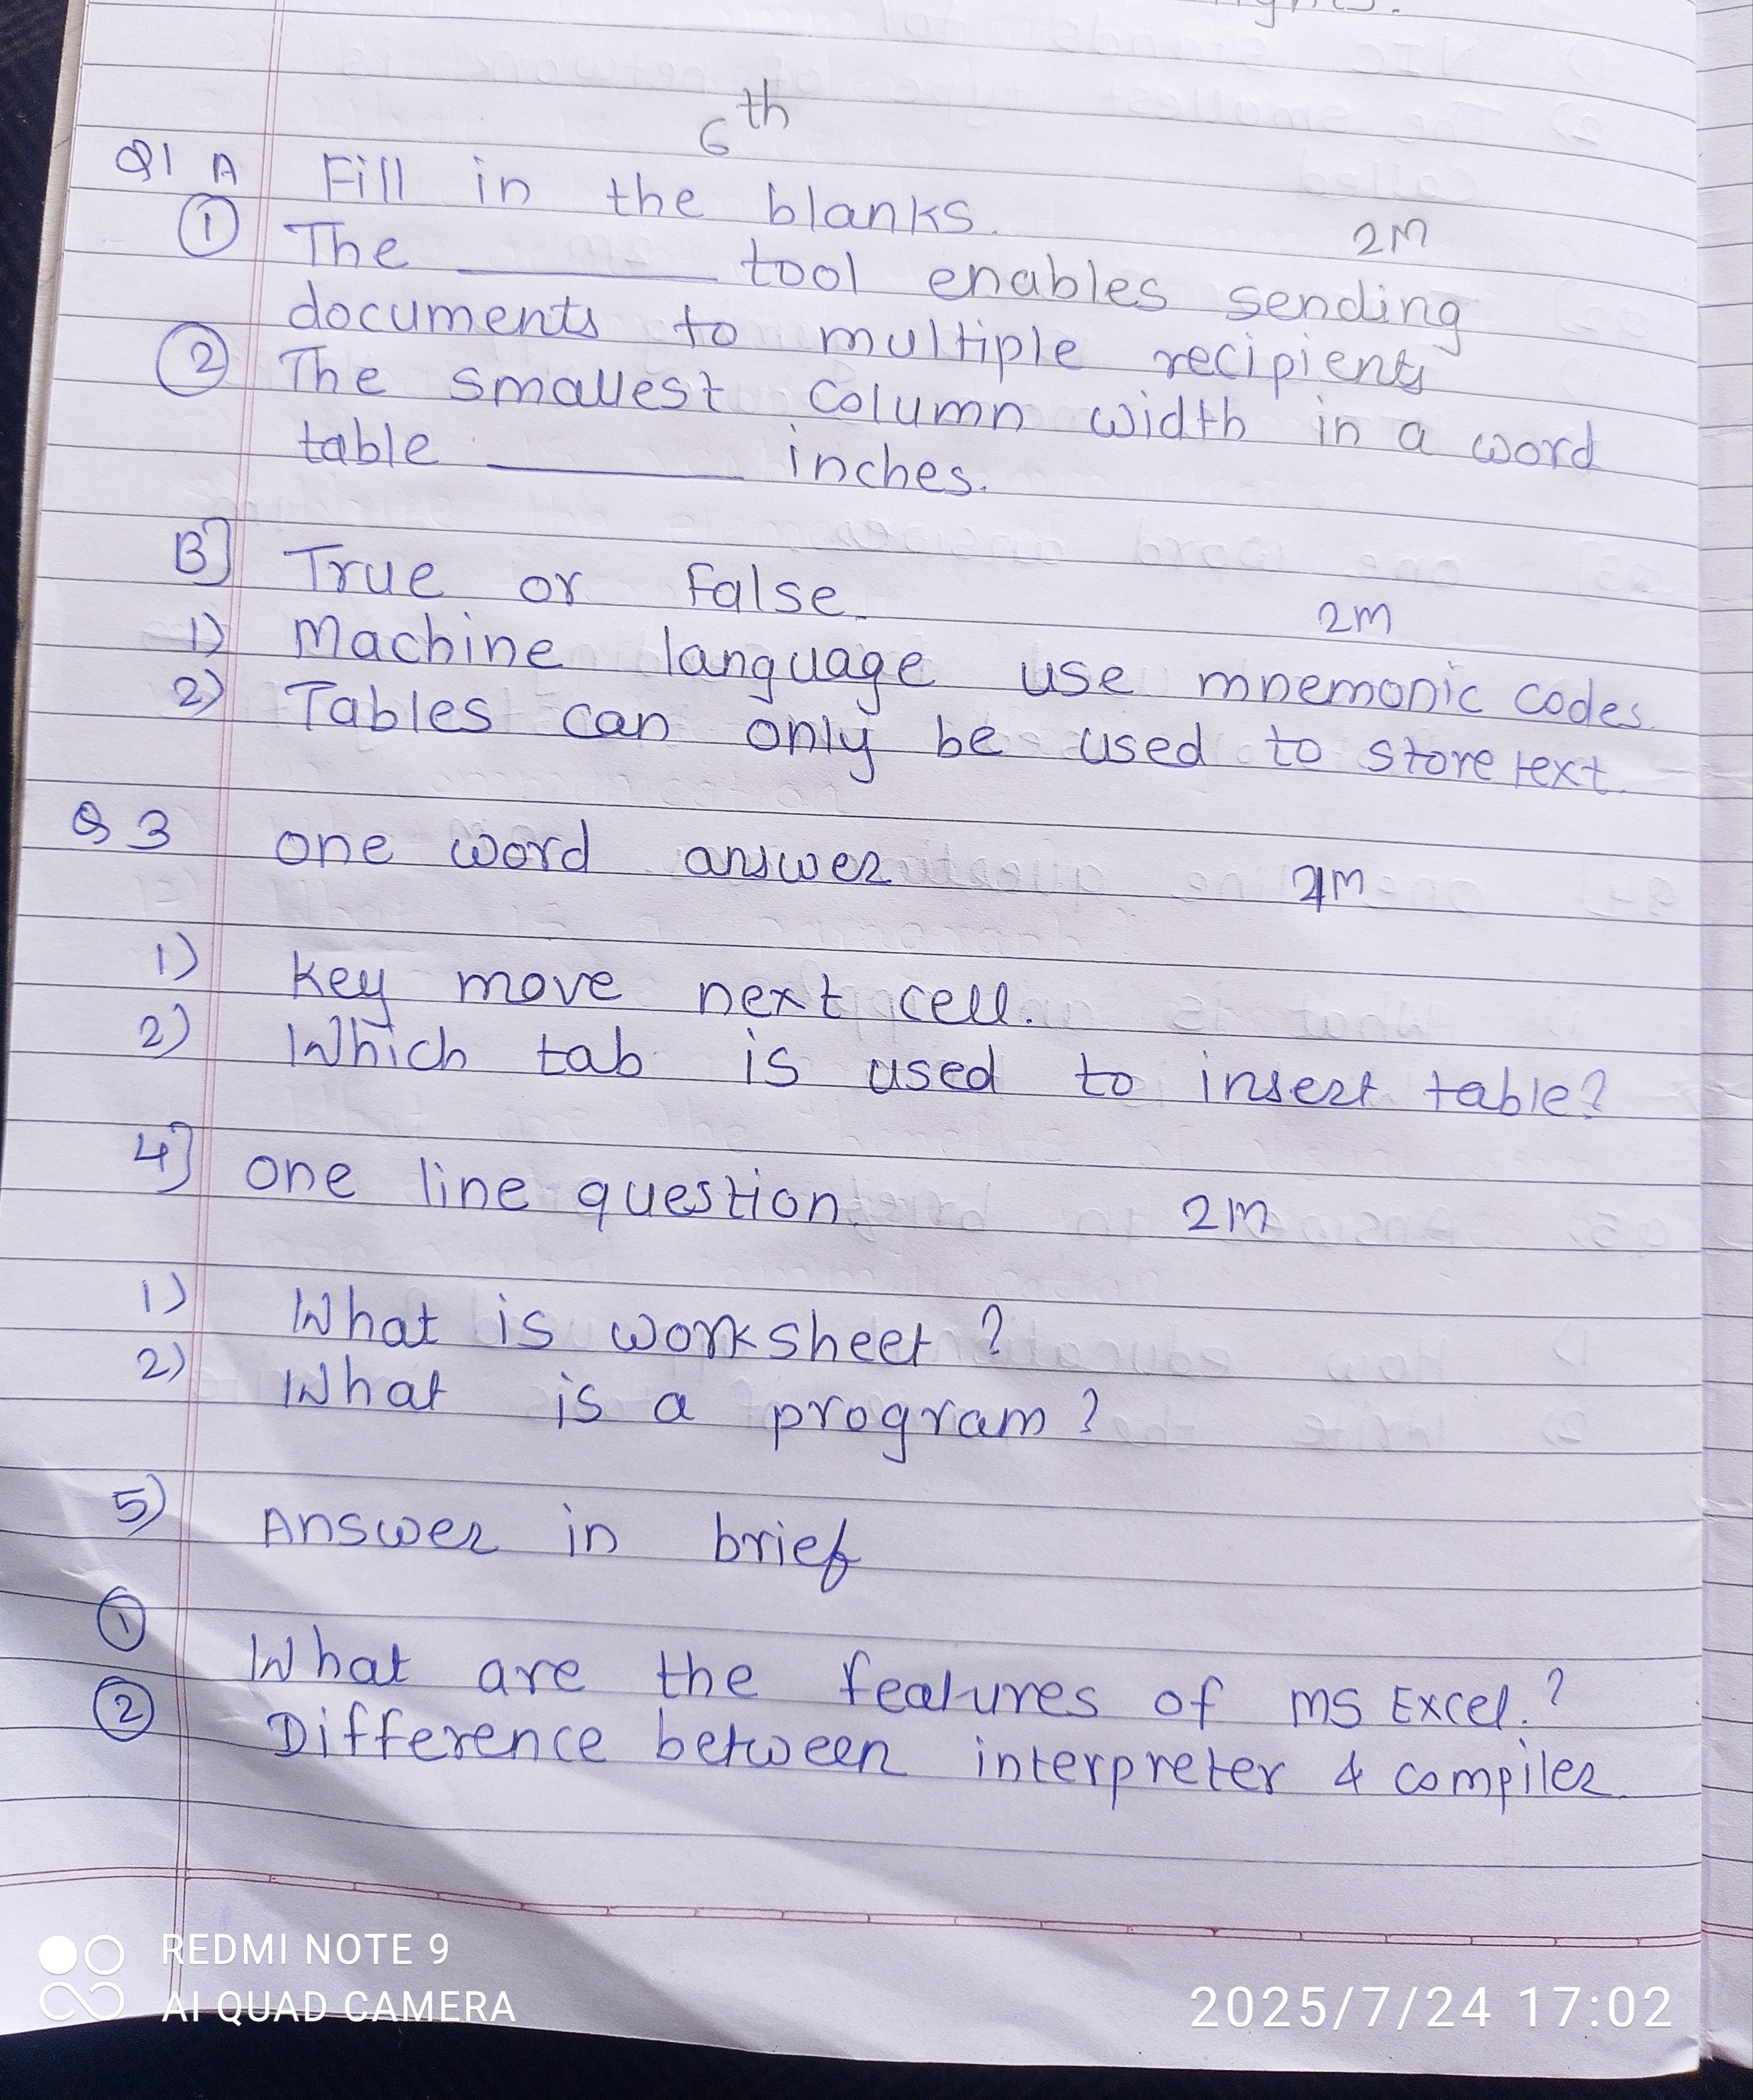 6th
Q1 A Fill in the blanks. 2M
① The ________ tool enables sending
documents to multiple recipients
② The smallest column width in a word
table ________ inches.
B] True or False. 2M
1) Machine language use mnemonic codes.
2) Tables can only be used to store text.
Q3 one word answer
1) key move next cell.
2) Which tab is used to insert table?
4] one line question. 2M
1) What is worksheet ?
2) What is a program ?
5) Answer in brief
① What are the features of MS Excel.?
② Difference between interpreter & compiler.
REDMI NOTE 9
AI QUAD CAMERA
2025/7/24 17:02